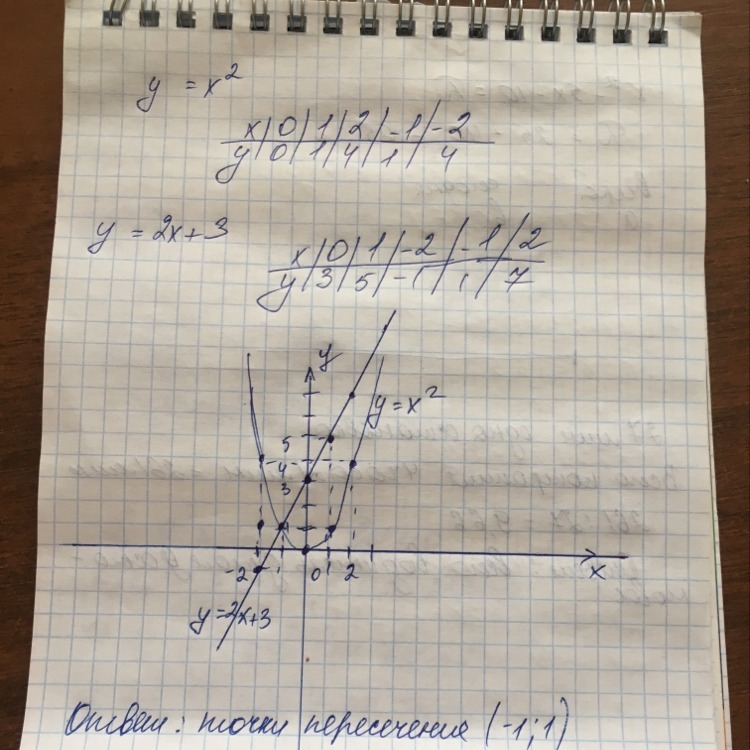 y = x²
x | 0 | 1 | 2 | -1 | -2
y | 0 | 1 | 4 | 1 | 4
y = 2x+3
x | 0 | 1 | -2 | -1 | 2
y | 3 | 5 | -1 | 1 | 7
y
y = x²
5
4
3
-2 -1 0 1 2 x
y=2x+3
Ответ: точки пересечения (-1;1)